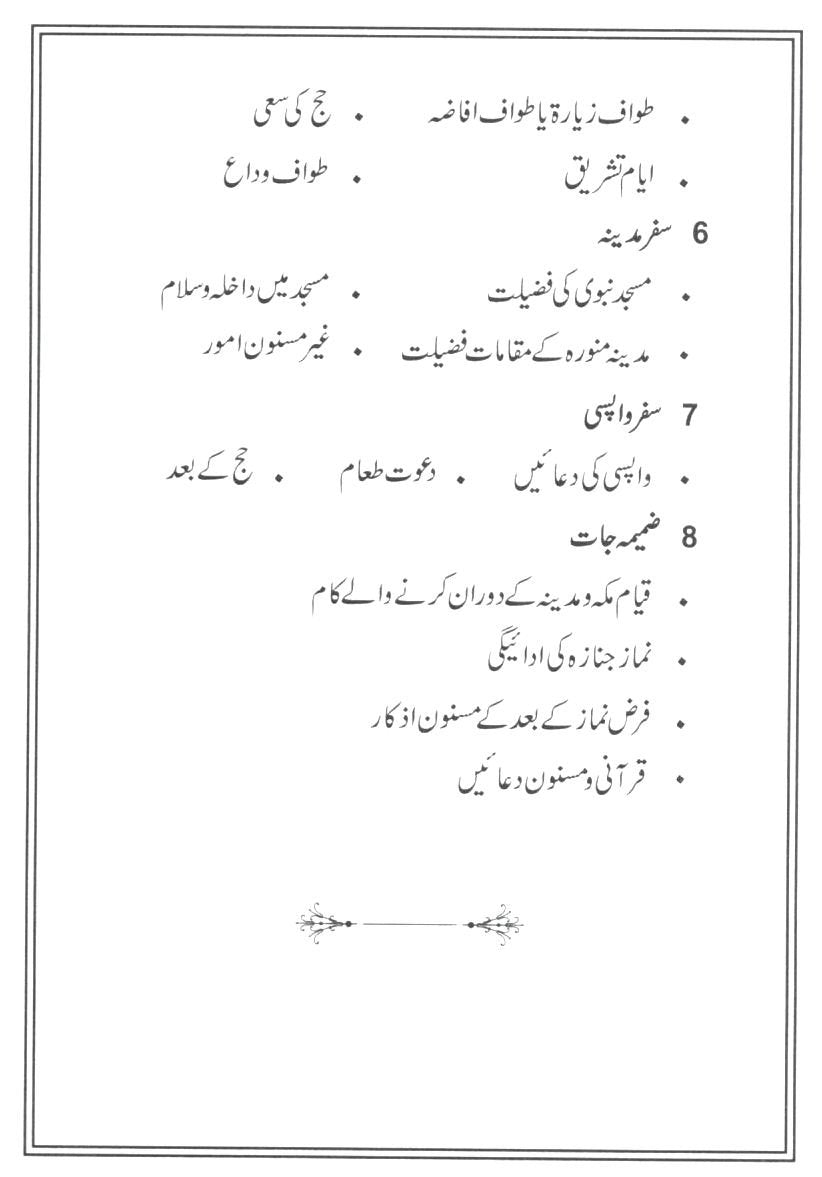 • طواف زیارۃ یا طواف افاضہ • حج کی سعی
• ایام تشریق • طواف وداع
6 سفر مدینہ
• مسجد نبوی کی فضیلت • مسجد میں داخلہ و سلام
• مدینہ منورہ کے مقامات فضیلت • غیر مسنون امور
7 سفر واپسی
• واپسی کی دعائیں • دعوت طعام • حج کے بعد
8 ضمیمہ جات
• قیام مکہ و مدینہ کے دوران کرنے والے کام
• نماز جنازہ کی ادائیگی
• فرض نماز کے بعد کے مسنون اذکار
• قرآنی و مسنون دعائیں